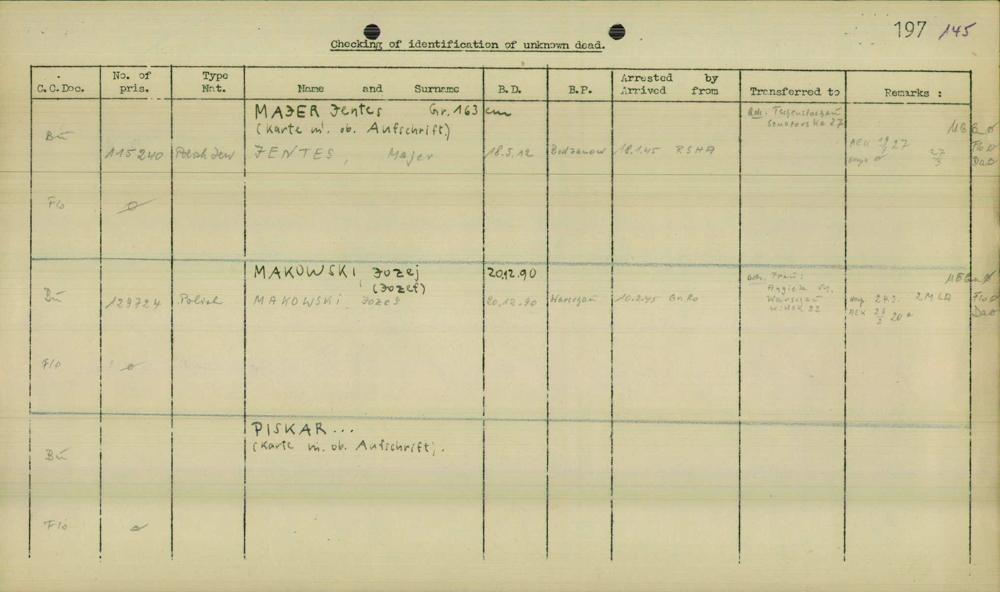 197 145
Checking of identification of unknown dead.
C.C.Doc. No. of pris. Type Nat. Name and Surname B.D. B.P. Arrested by Arrived from Transferred to Remarks :
MAJER Jentes Gr. 163 cm
(Karte m. ob. Aufschrift)
Bu 115240 Polish Jew JENTES, Majer 18.5.12 Bodzanow 18.1.45 RSHA
Flo ø
MAKOWSKI Jozej 20.12.90
(Jozef)
Bu 129724 Polish MAKOWSKI Jozef 20.12.90 Warschau 10.2.45 GnRo
Warschau
Flo ø
PISKAR...
(Karte m. ob. Aufschrift).
Bu
Flo ø